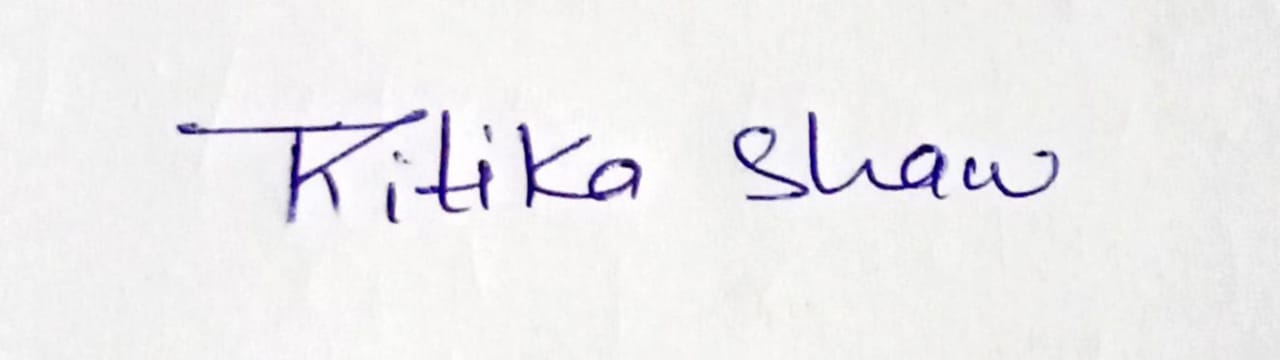 Ritika Shaw